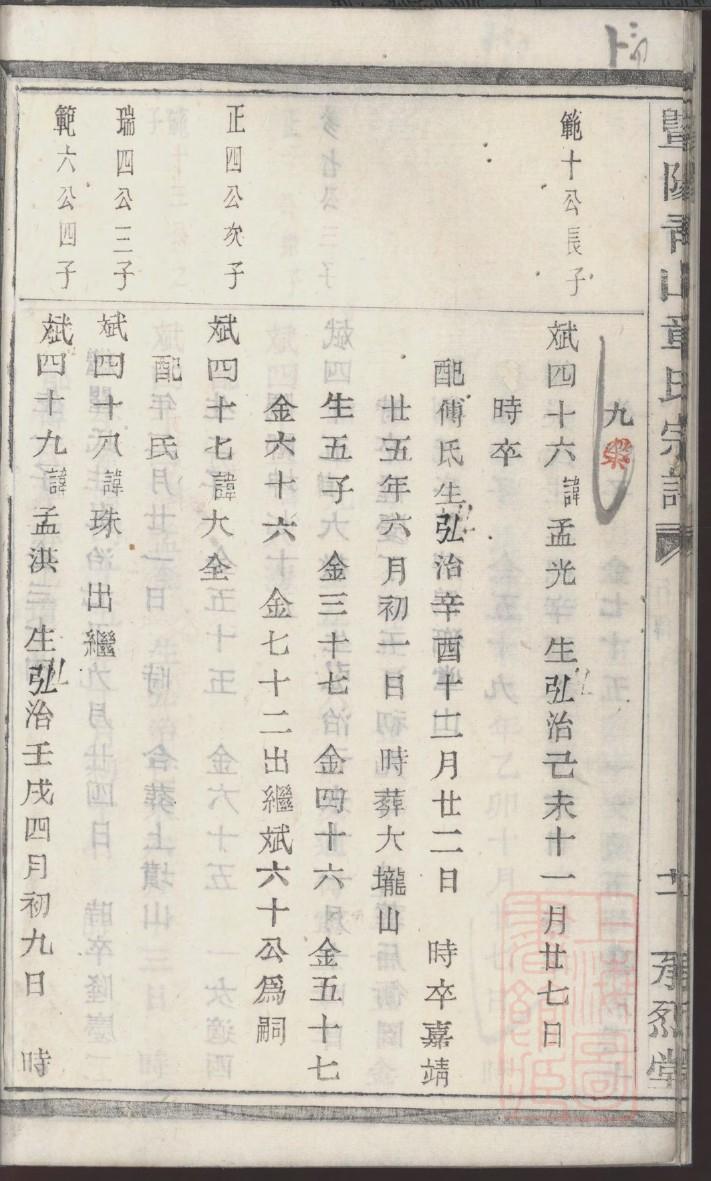 九
範十公長子
斌四十六諱孟光 生弘治己未十一月廿七日
時卒
配傅氏生弘治辛酉十二月廿二日 時卒嘉靖
廿五年六月初一日 時葬大壠山
生五子 金三十七 金四十六 金五十七
金六十六 金七十二出繼斌六十公爲嗣
正四公次子
斌四十七諱大全
配 氏
瑞四公三子
斌四十八諱珠 出繼
範六公四子
斌四十九諱孟洪 生弘治壬戌四月初九日 時